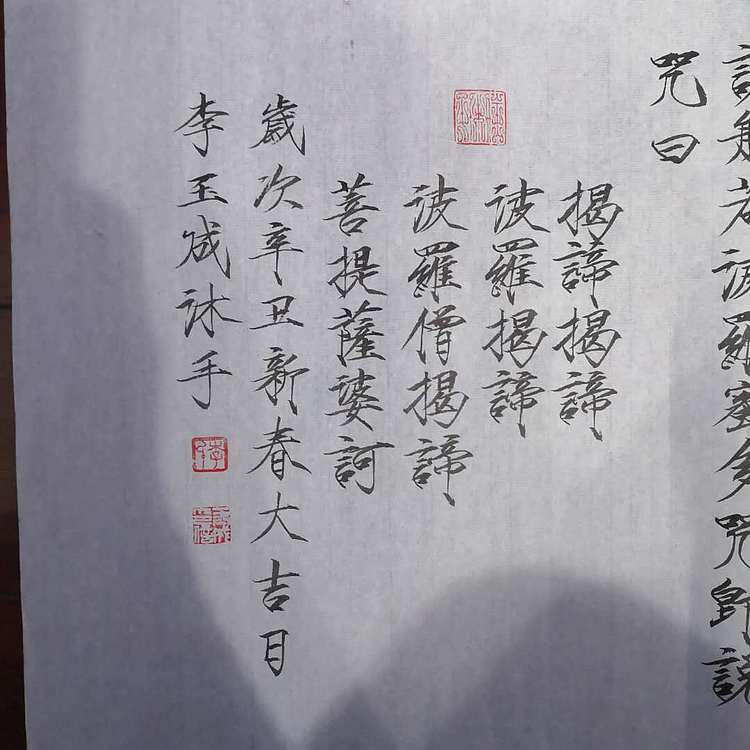 說般若波羅蜜多咒即說
咒曰
揭諦揭諦
波羅揭諦
波羅僧揭諦
菩提薩婆訶
歲次辛丑新春大吉日
李玉成沐手
李